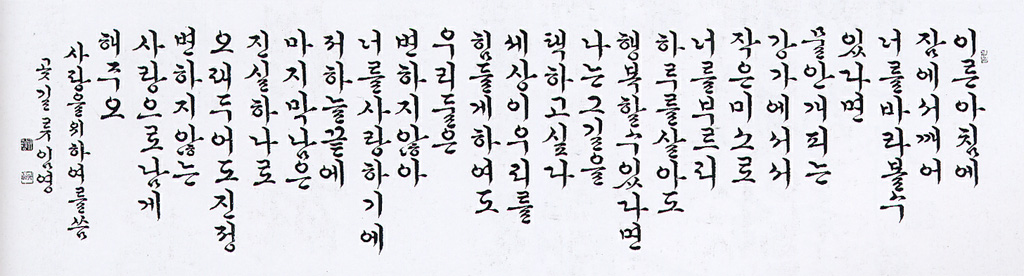 이른아침에
잠에서깨어
너를바라볼수
있다면
물안개피는
강가에서서
작은미소로
너를부르리
하루를살아도
행복할수있다면
나는그길을
택하고싶다
세상이우리를
힘들게하여도
우리둘은
변하지않아
너를사랑하기에
저하늘끝에
마지막남은
진실하나로
오래두어도진정
변하지않는
사랑으로남게
해주오
사랑을위하여를씀